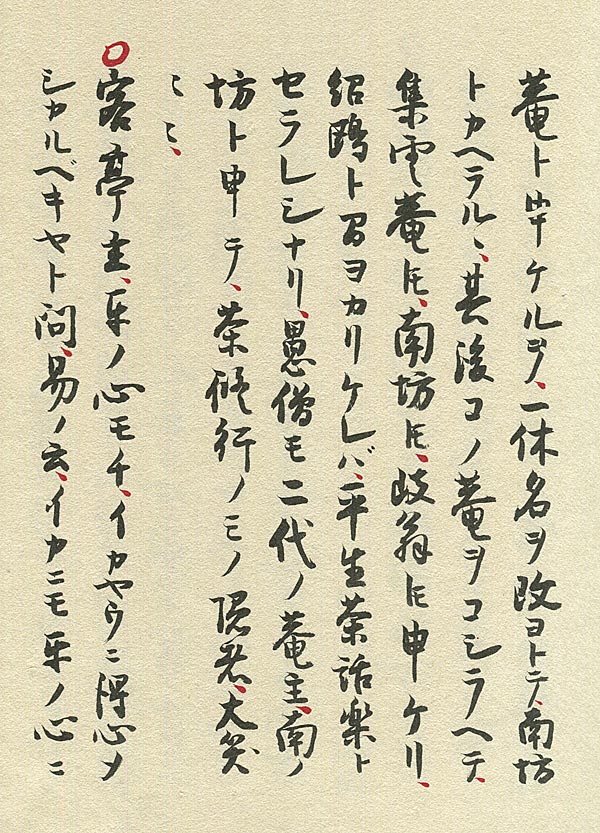 菴ト申ケルヲ、一休名ヲ改ヨトテ、南坊
トカヘラルヽ、其後コノ菴ヲコシラヘテ、
集雲菴トモ、南坊トモ、岐翁トモ申ケリ、
紹鷗ト ヨカリケレバ、平生茶話楽ト
セラレシナリ、愚僧モ二代ノ菴主、南ノ
坊ト申テ、茶修行ノモノ 、大笑
〻〻、
○客亭主、互ノ心モチ、イカヤウニ得心メ
シカルベキヤト問、易ノ云、イカニモ互ノ心ニ